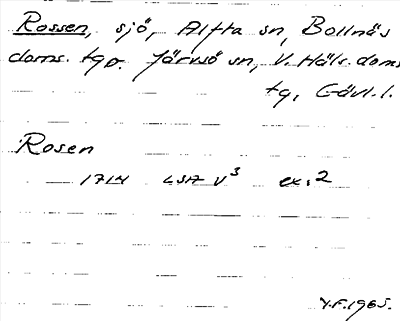 Rossen, sjö, Alfta sn, Bollnäs
doms. tg o. Järvsö sn, V. Häls. doms
tg, Gävl. l.
Rosen
1714 LSA V³ ex. 2
Y.F. 1965.